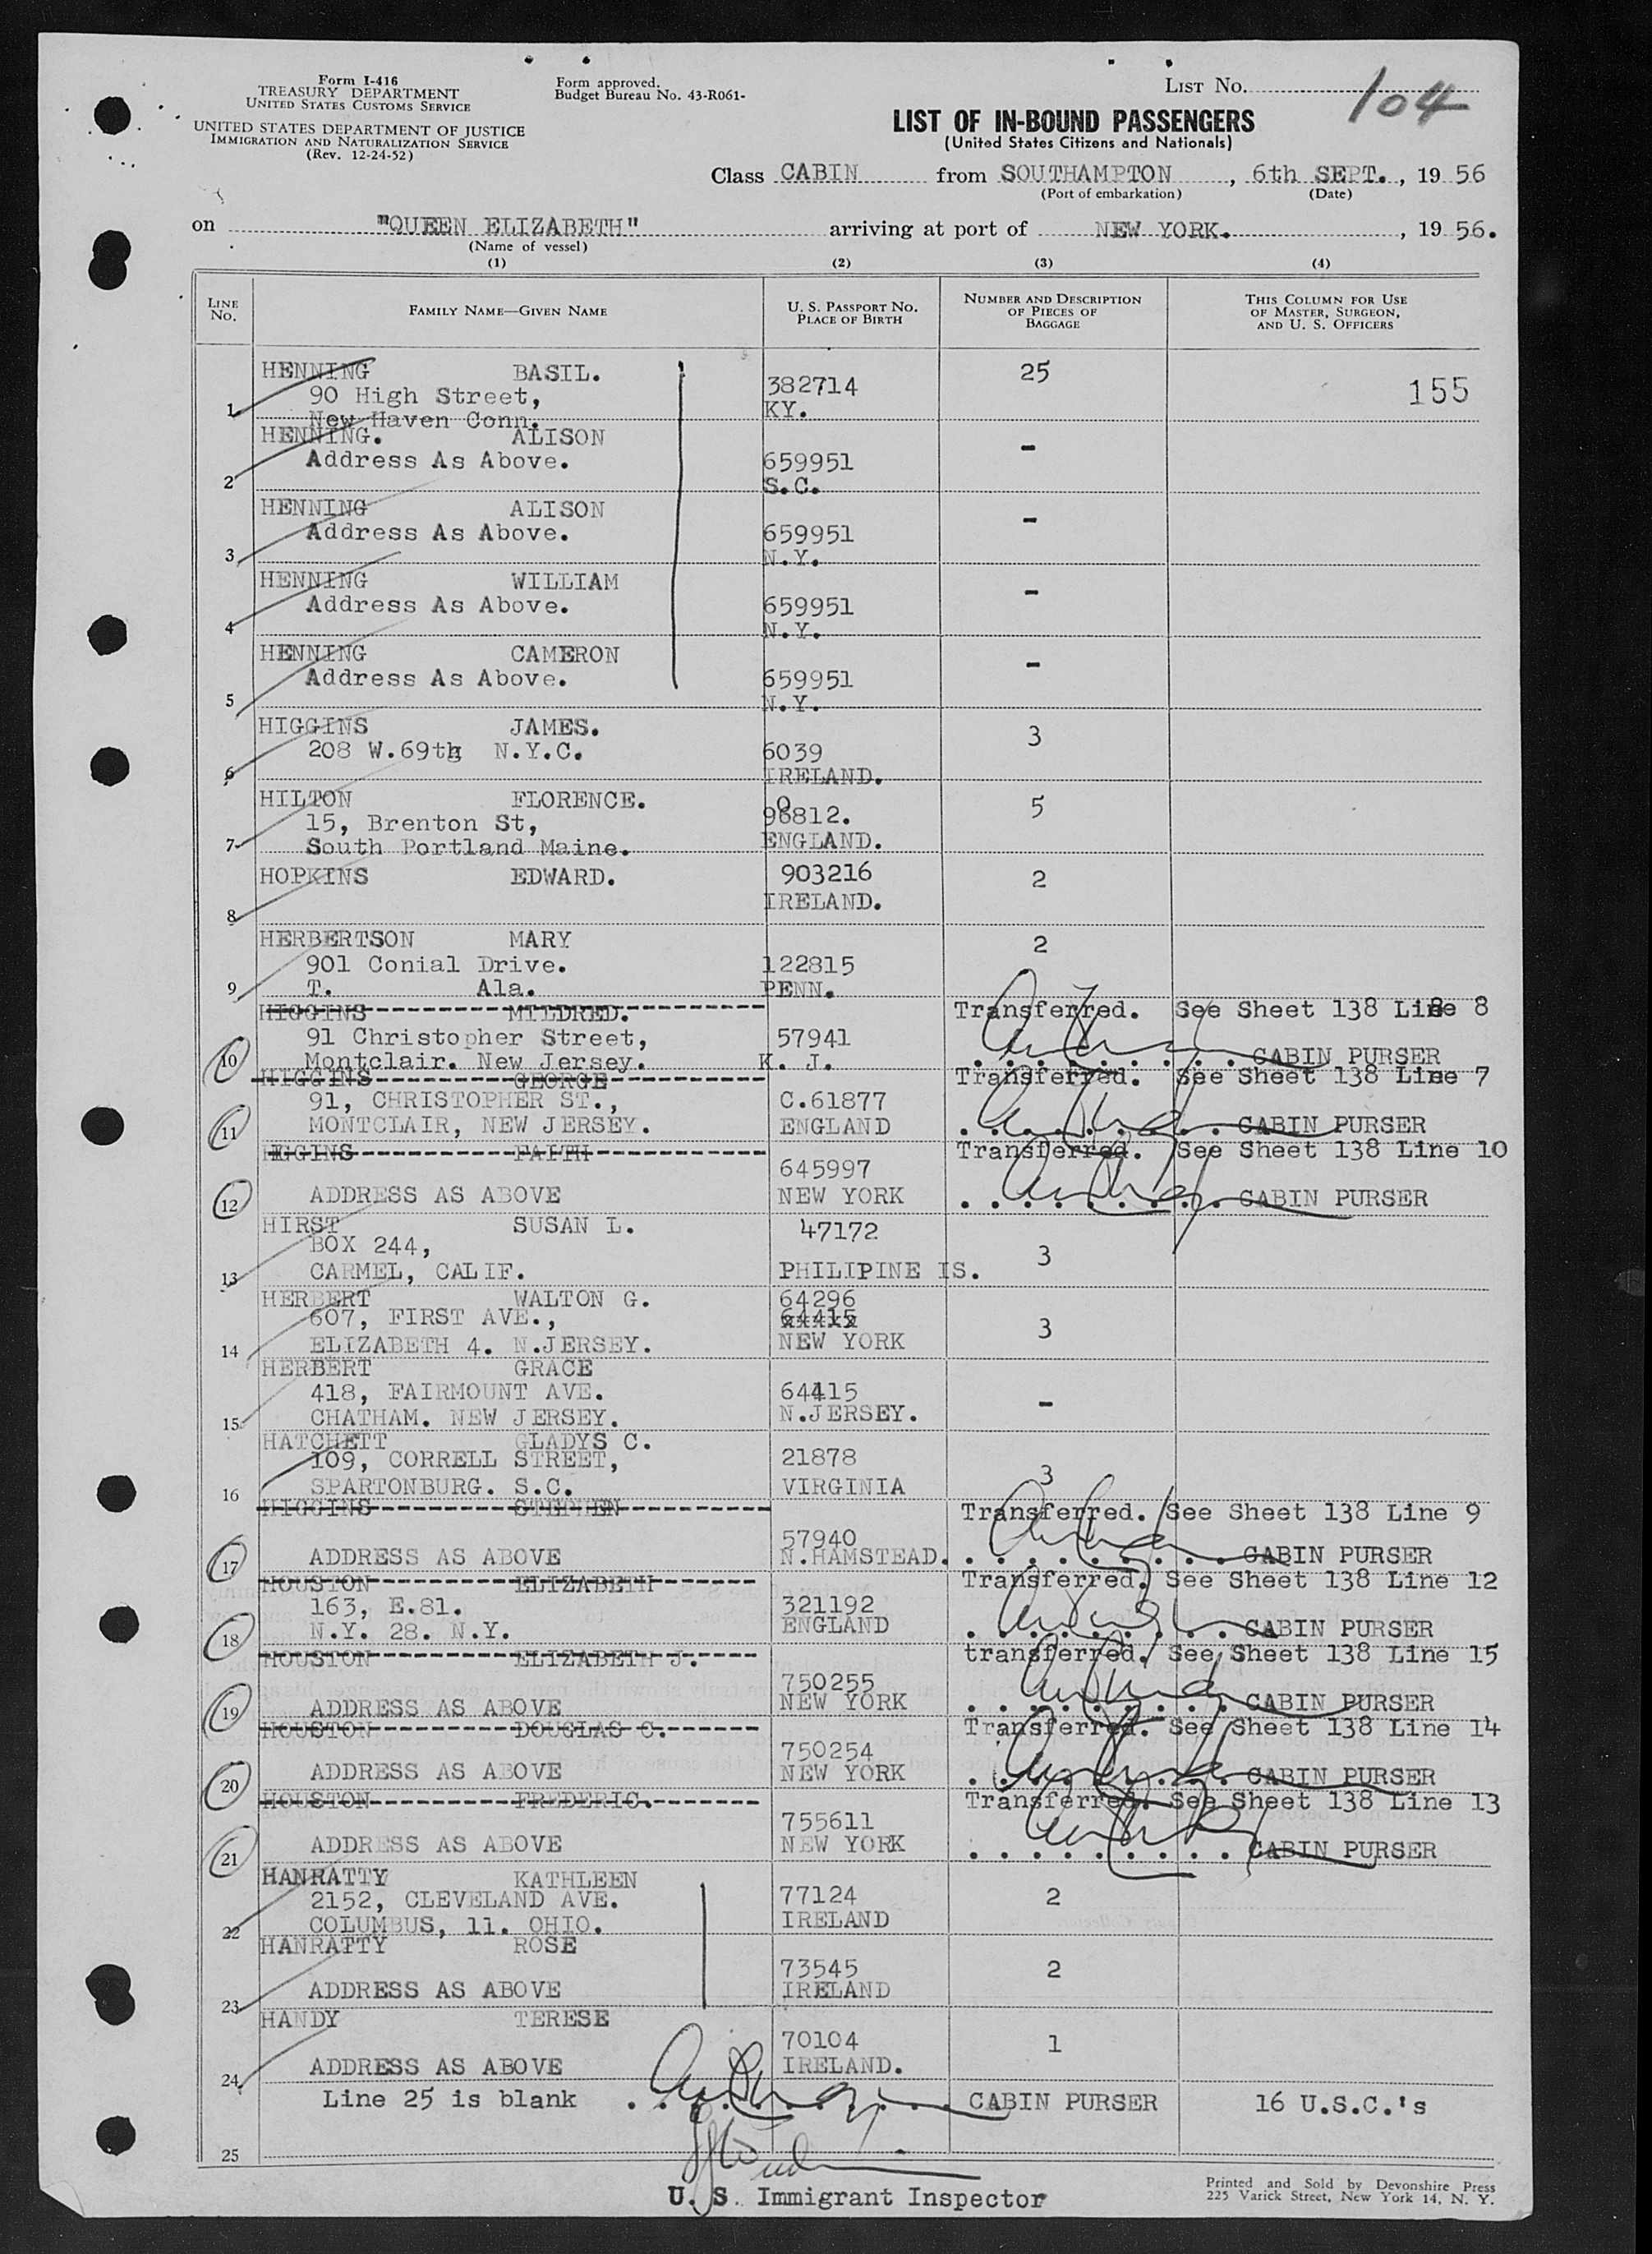 Form I-416
TREASURY DEPARTMENT
UNITED STATES CUSTOMS SERVICE
UNITED STATES DEPARTMENT OF JUSTICE
IMMIGRATION AND NATURALIZATION SERVICE
(Rev. 12-24-52)
Form approved.
Budget Bureau No. 43-R061-
LIST No. 104
LIST OF IN-BOUND PASSENGERS
(United States Citizens and Nationals)
Class CABIN from SOUTHAMPTON, 6th SEPT., 19 56
(Port of embarkation) (Date)
on "QUEEN ELIZABETH" arriving at port of NEW YORK., 19 56.
(Name of vessel)
(1) (2) (3) (4)
LINE No. FAMILY NAME—GIVEN NAME U. S. PASSPORT No. PLACE OF BIRTH NUMBER AND DESCRIPTION OF PIECES OF BAGGAGE THIS COLUMN FOR USE OF MASTER, SURGEON, AND U. S. OFFICERS
HENNING BASIL. 25
90 High Street, 382714 155
1 New Haven Conn. KY.
HENNING. ALISON -
Address As Above. 659951
2 S.C.
HENNING ALISON -
Address As Above. 659951
3 N.Y.
HENNING WILLIAM -
Address As Above. 659951
4 N.Y.
HENNING CAMERON -
Address As Above. 659951
5 N.Y.
HIGGINS JAMES. 3
208 W.69th N.Y.C. 6039
6 IRELAND.
HILTON FLORENCE. 5
15, Brenton St, 96812.
7 South Portland Maine. ENGLAND.
HOPKINS EDWARD. 903216 2
8 IRELAND.
HERBERTSON MARY 2
901 Conial Drive. 122815
9 T. Ala. PENN.
HIGGINS MILDRED. Transferred. See Sheet 138 Line 8
91 Christopher Street, 57941
10 Montclair. New Jersey. K. J. CABIN PURSER
HIGGINS GEORGE Transferred. See Sheet 138 Line 7
91, CHRISTOPHER ST., C.61877
11 MONTCLAIR, NEW JERSEY. ENGLAND CABIN PURSER
HIGGINS FAITH Transferred. See Sheet 138 Line 10
645997
12 ADDRESS AS ABOVE NEW YORK CABIN PURSER
HIRST SUSAN L. 47172
BOX 244, 3
13 CARMEL, CALIF. PHILIPINE IS.
HERBERT WALTON G. 64296
607, FIRST AVE., 64415 3
14 ELIZABETH 4. N.JERSEY. NEW YORK
HERBERT GRACE
418, FAIRMOUNT AVE. 64415
15 CHATHAM. NEW JERSEY. N.JERSEY. -
HATCHETT GLADYS C.
109, CORRELL STREET, 21878 3
16 SPARTONBURG. S.C. VIRGINIA
HIGGINS STEPHEN Transferred. See Sheet 138 Line 9
57940
17 ADDRESS AS ABOVE N.HAMSTEAD. CABIN PURSER
HOUSTON ELIZABETH Transferred. See Sheet 138 Line 12
163, E.81. 321192
18 N.Y. 28. N.Y. ENGLAND CABIN PURSER
HOUSTON ELIZABETH J. transferred. See Sheet 138 Line 15
750255
19 ADDRESS AS ABOVE NEW YORK CABIN PURSER
HOUSTON DOUGLAS C. Transferred. See Sheet 138 Line 14
750254
20 ADDRESS AS ABOVE NEW YORK CABIN PURSER
HOUSTON FREDERIC. Transferred. See Sheet 138 Line 13
755611
21 ADDRESS AS ABOVE NEW YORK CABIN PURSER
HANRATTY KATHLEEN
2152, CLEVELAND AVE. 77124 2
22 COLUMBUS, 11. OHIO. IRELAND
HANRATTY ROSE
73545 2
23 ADDRESS AS ABOVE IRELAND
HANDY TERESE
70104 1
24 ADDRESS AS ABOVE IRELAND.
Line 25 is blank CABIN PURSER 16 U.S.C.'s
25
U. S. Immigrant Inspector
Printed and Sold by Devonshire Press
225 Varick Street, New York 14, N. Y.